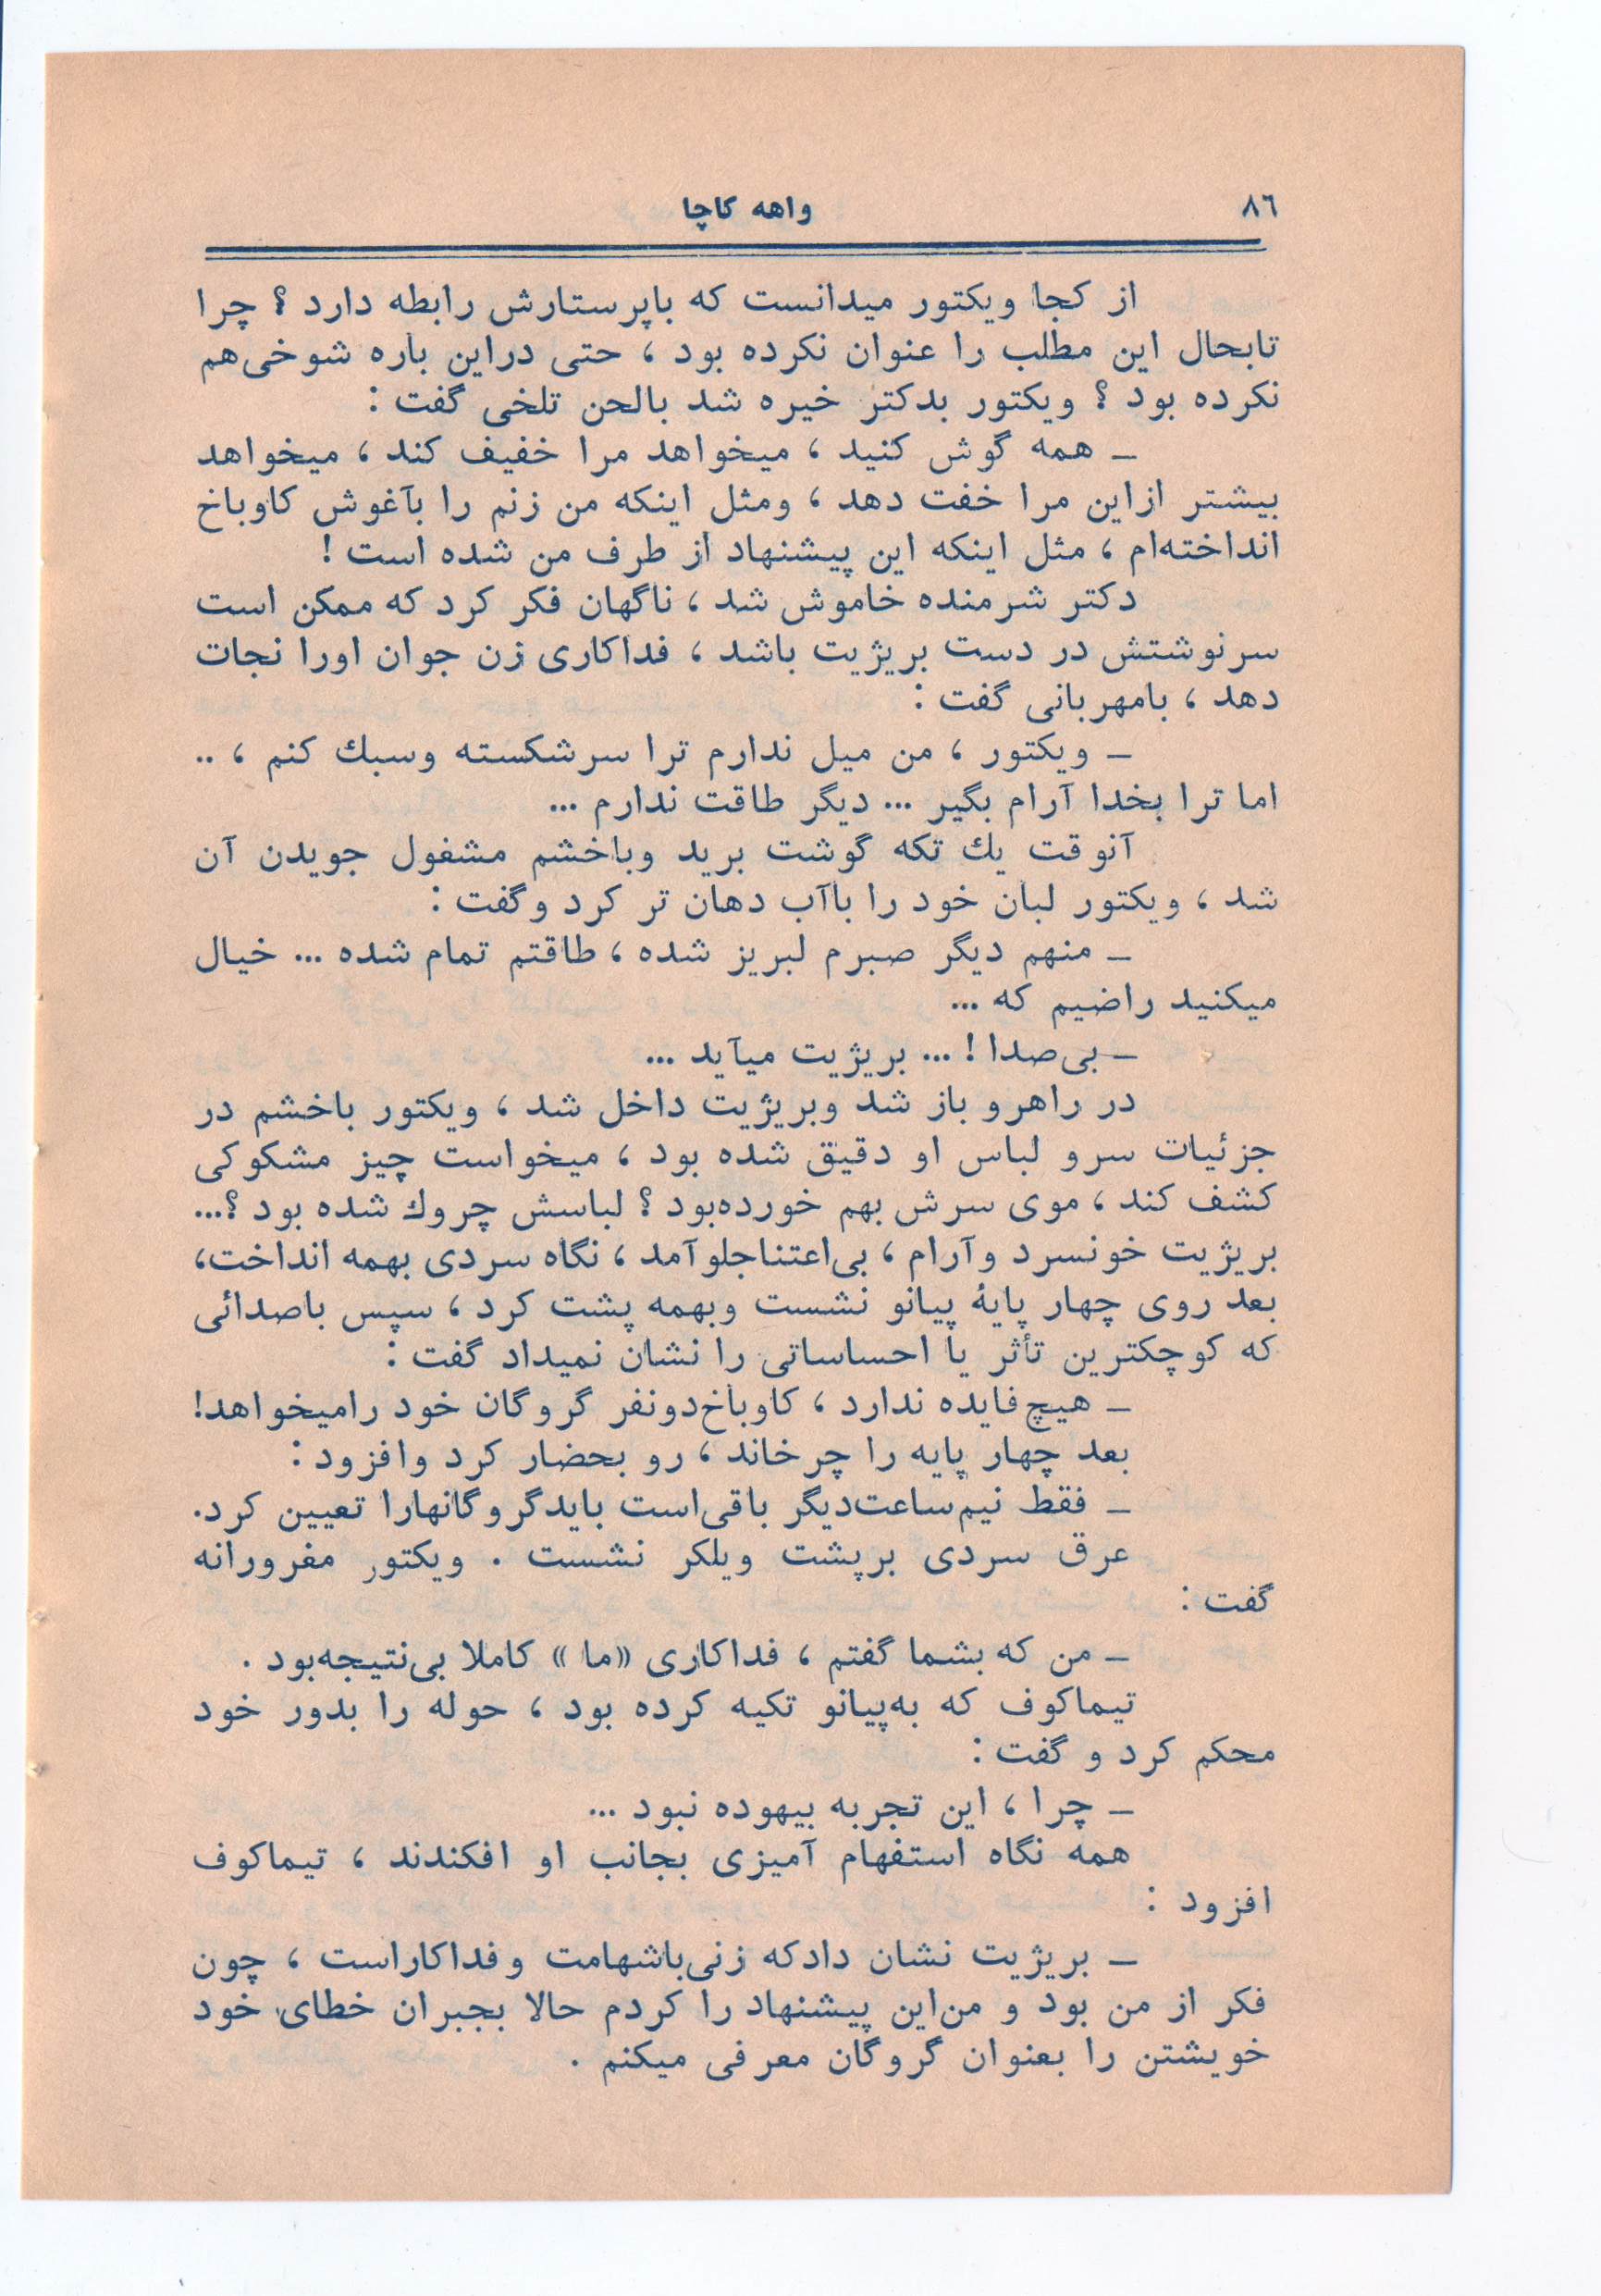 ۸٦
واهه کاچا
از کجا ویکتور میدانست که باپرستارش رابطه دارد ؟ چرا
تابحال این مطلب را عنوان نکرده بود ، حتی دراین باره شوخی‌هم
نکرده بود ؟ ویکتور بدکتر خیره شد بالحن تلخی گفت :
ـ همه گوش کنید ، میخواهد مرا خفیف کند ، میخواهد
بیشتر ازاین مرا خفت دهد ، ومثل اینکه من زنم را بآغوش کاوباخ
انداخته‌ام ، مثل اینکه این پیشنهاد از طرف من شده است !
دکتر شرمنده خاموش شد ، ناگهان فکر کرد که ممکن است
سرنوشتش در دست بریژیت باشد ، فداکاری زن جوان اورا نجات
دهد ، بامهربانی گفت :
ـ ویکتور ، من میل ندارم ترا سرشکسته وسبك کنم ، ..
اما ترا بخدا آرام بگیر ... دیگر طاقت ندارم ...
آنوقت یك تکه گوشت برید وباخشم مشغول جویدن آن
شد ، ویکتور لبان خود را باآب دهان تر کرد وگفت :
ـ منهم دیگر صبرم لبریز شده ، طاقتم تمام شده ... خیال
میکنید راضیم که ...
ـ بی‌صدا ! ... بریژیت میآید ...
در راهرو باز شد وبریژیت داخل شد ، ویکتور باخشم در
جزئیات سرو لباس او دقیق شده بود ، میخواست چیز مشکوکی
کشف کند ، موی سرش بهم خورده‌بود ؟ لباسش چروك شده بود ؟...
بریژیت خونسرد وآرام ، بی‌اعتناجلوآمد ، نگاه سردی بهمه انداخت،
بعد روی چهار پایۀ پیانو نشست وبهمه پشت کرد ، سپس باصدائی
که کوچکترین تأثر یا احساساتی را نشان نمیداد گفت :
ـ هیچ‌فایده ندارد ، کاوباخ‌دونفر گروگان خود رامیخواهد!
بعد چهار پایه را چرخاند ، رو بحضار کرد وافزود :
ـ فقط نیم‌ساعت‌دیگر باقی‌است بایدگروگانهارا تعیین کرد.
عرق سردی برپشت ویلکر نشست . ویکتور مغرورانه
گفت :
ـ من که بشما گفتم ، فداکاری «ما» کاملا بی‌نتیجه‌بود .
تیماکوف که به‌پیانو تکیه کرده بود ، حوله را بدور خود
محکم کرد و گفت :
ـ چرا ، این تجربه بیهوده نبود ...
همه نگاه استفهام آمیزی بجانب او افکندند ، تیماکوف
افزود :
ـ بریژیت نشان دادکه زنی‌باشهامت وفداکاراست ، چون
فکر از من بود و من‌این پیشنهاد را کردم حالا بجبران خطای خود
خویشتن را بعنوان گروگان معرفی میکنم .